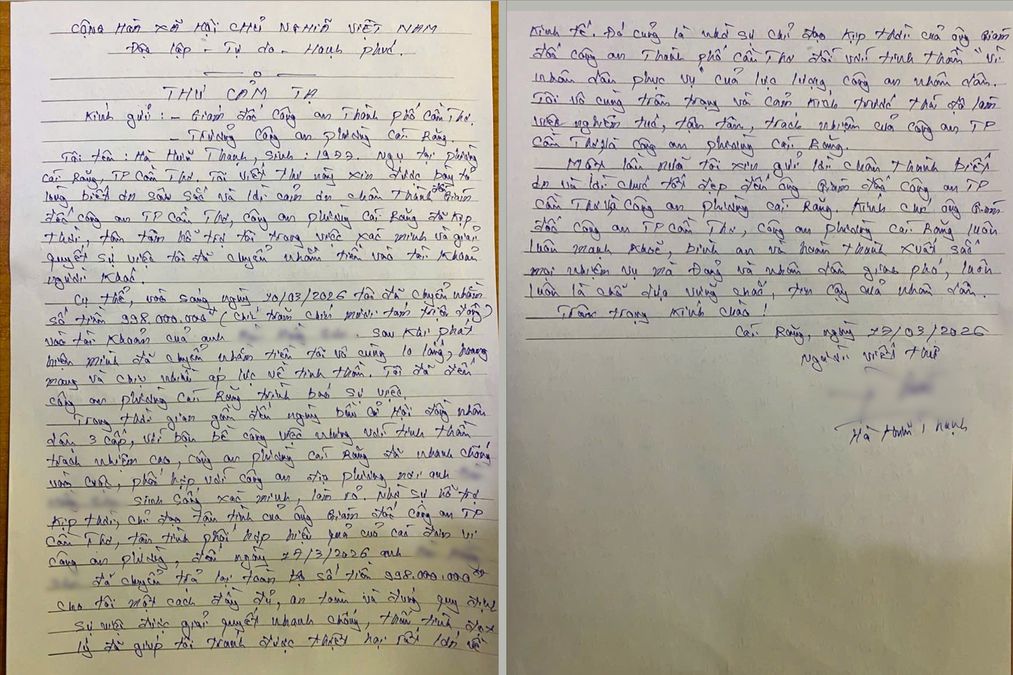 CỘNG HÒA XÃ HỘI CHỦ NGHĨA VIỆT NAM
Độc lập - Tự do - Hạnh phúc
THƯ CẢM TẠ
Kính gửi: - Giám đốc Công an Thành phố Cần Thơ.
- Trưởng Công an phường Cái Răng.
Tôi tên: Hà Hữu Thanh, sinh: 1977. Ngụ tại phường
Cái Răng, TP Cần Thơ. Tôi viết thư này xin được bày tỏ
lòng biết ơn sâu sắc và lời cảm ơn chân thành đến Giám
đốc công an TP Cần Thơ, công an phường Cái Răng đã kịp
thời, tận tâm hỗ trợ tôi trong việc xác minh và giải
quyết sự việc tôi đã chuyển nhầm tiền vào tài khoản
người khác.
Cụ thể, vào sáng ngày 10/03/2026 tôi đã chuyển nhầm
số tiền 998.000.000đ (chín trăm chín mươi tám triệu đồng)
vào tài khoản của anh
. Sau khi phát
hiện mình đã chuyển nhầm tiền tôi vô cùng lo lắng, hoang
mang và chịu nhiều áp lực về tinh thần. Tôi đã đến
công an phường Cái Răng trình báo sự việc.
Trong thời gian gần đến ngày bầu cử Hội đồng nhân
dân 3 cấp, với bộn bề công việc nhưng với tinh thần
trách nhiệm cao, công an phường Cái Răng đã nhanh chóng
vào cuộc, phối hợp với công an địa phương nơi anh
sinh sống xác minh, làm rõ. Nhờ sự hỗ trợ
kịp thời, chỉ đạo tận tình của ông Giám đốc công an TP
Cần Thơ, tận tình phối hợp hiệu quả của các đơn vị
công an phường, đến ngày 17/3/2026 anh
đã chuyển trả lại toàn bộ số tiền 998.000.000đ
cho tôi một cách đầy đủ, an toàn và đúng quy định
Sự việc được giải quyết nhanh chóng, thấu tình đạt
lý đã giúp tôi tránh được thiệt hại rất lớn về
kinh tế. Đó cũng là nhờ sự chỉ đạo kịp thời của ông Giám
đốc công an Thành phố Cần Thơ đối với tinh thần "vì
nhân dân phục vụ" của lực lượng công an nhân dân.
Tôi vô cùng trân trọng và cảm kích trước thái độ làm
việc nghiêm túc, tận tâm, trách nhiệm của công an TP
Cần Thơ và công an phường Cái Răng.
Một lần nữa tôi xin gửi lời chân thành biết
ơn và lời chúc tốt đẹp đến ông Giám đốc công an TP
Cần Thơ và Công an phường Cái Răng. Kính chúc ông Giám
đốc công an TP Cần Thơ, công an phường Cái Răng luôn
luôn mạnh khoẻ, bình an và hoàn thành xuất sắc
mọi nhiệm vụ mà Đảng và nhân dân giao phó, luôn
luôn là chỗ dựa vững chắc, tin cậy của nhân dân.
Trân trọng kính chào!
Cái Răng, ngày 17/03/2026
Người viết thư
Hà Hữu Thanh